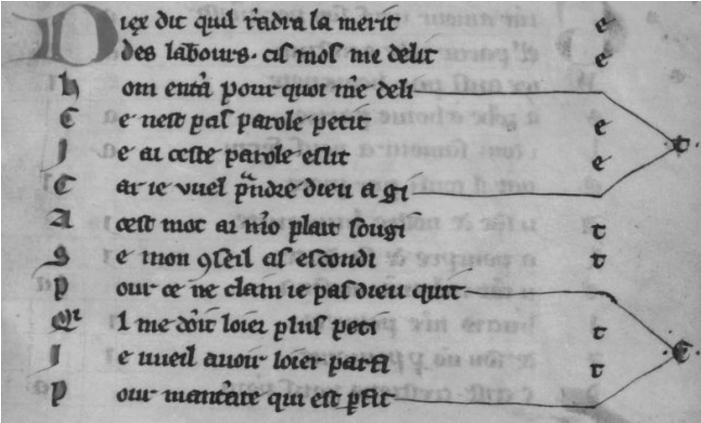 Diex dit quil rẽdra la merit e
des labours. cis mos me delit e
hom entã pour quoi mẽ deli t
Ce nest pas parole petit e
Je ai ceste parole eslit e
Car ie vuel p̃ndre dieu a gi
A cest mot ai mõ plait sougi t
Se mon ꝯseil as escondi t
Pour ce ne claim ie pas dieu quit e
l me doit loier plus peti t
Je uueil auoir loier parfi t
Pour qui est